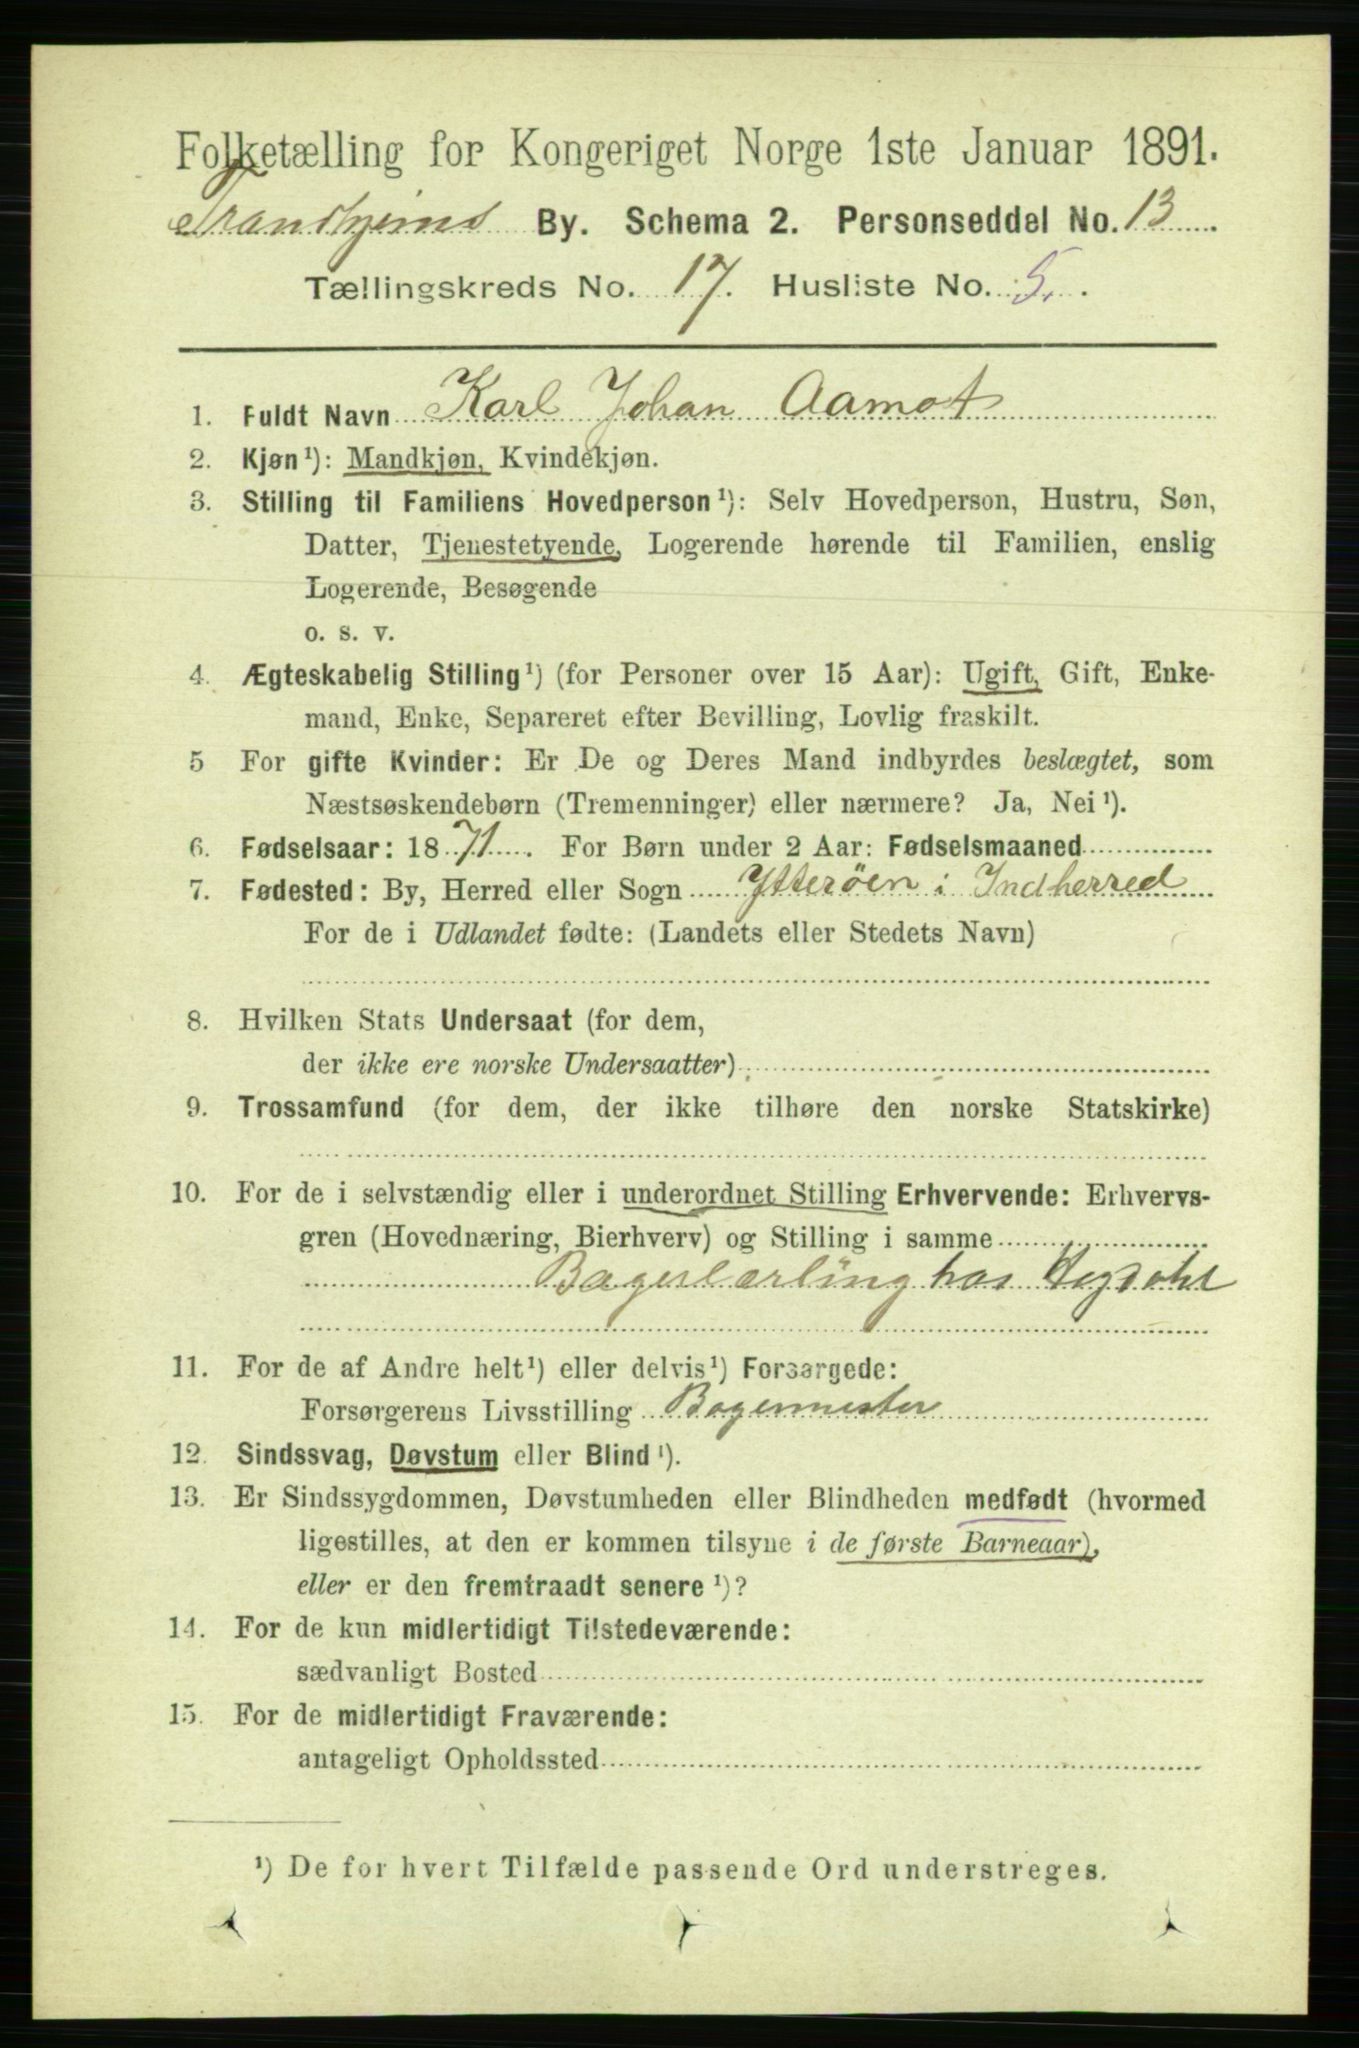 Folketælling for Kongeriget Norge 1ste Januar 1891.
Trondhjems By. Schema 2. Personseddel No. 13
Tællingskreds No. 17. Husliste No. 5.
1. Fuldt Navn Karl Johan Aamot
2. Kjøn¹): Mandkjøn, Kvindekjøn.
3. Stilling til Familiens Hovedperson¹): Selv Hovedperson, Hustru, Søn,
Datter, Tjenestetyende, Logerende hørende til Familien, enslig
Logerende, Besøgende
o. s. v.
4. Ægteskabelig Stilling¹) (for Personer over 15 Aar): Ugift, Gift, Enke-
mand, Enke, Separeret efter Bevilling, Lovlig fraskilt.
5 For gifte Kvinder: Er De og Deres Mand indbyrdes beslægtet, som
Næstsøskendebørn (Tremenninger) eller nærmere? Ja, Nei¹).
6. Fødselsaar: 1871. For Børn under 2 Aar: Fødselsmaaned
7. Fødested: By, Herred eller Sogn Ytteröen i Indherred
For de i Udlandet fødte: (Landets eller Stedets Navn)
8. Hvilken Stats Undersaat (for dem,
der ikke ere norske Undersaatter)
9. Trossamfund (for dem, der ikke tilhøre den norske Statskirke)
10. For de i selvstændig eller i underordnet Stilling Erhvervende: Erhvervs-
gren (Hovednæring, Bierhverv) og Stilling i samme
Bagerlærling hos
11. For de af Andre helt¹) eller delvis¹) Forsørgede:
Forsørgerens Livsstilling Bagermester
12. Sindssvag, Døvstum eller Blind¹).
13. Er Sindssygdommen, Døvstumheden eller Blindheden medfødt (hvormed
ligestilles, at den er kommen tilsyne i de første Barneaar),
eller er den fremtraadt senere¹)?
14. For de kun midlertidigt Tilstedeværende:
sædvanligt Bosted
15. For de midlertidigt Fraværende:
antageligt Opholdssted
¹) De for hvert Tilfælde passende Ord understreges.